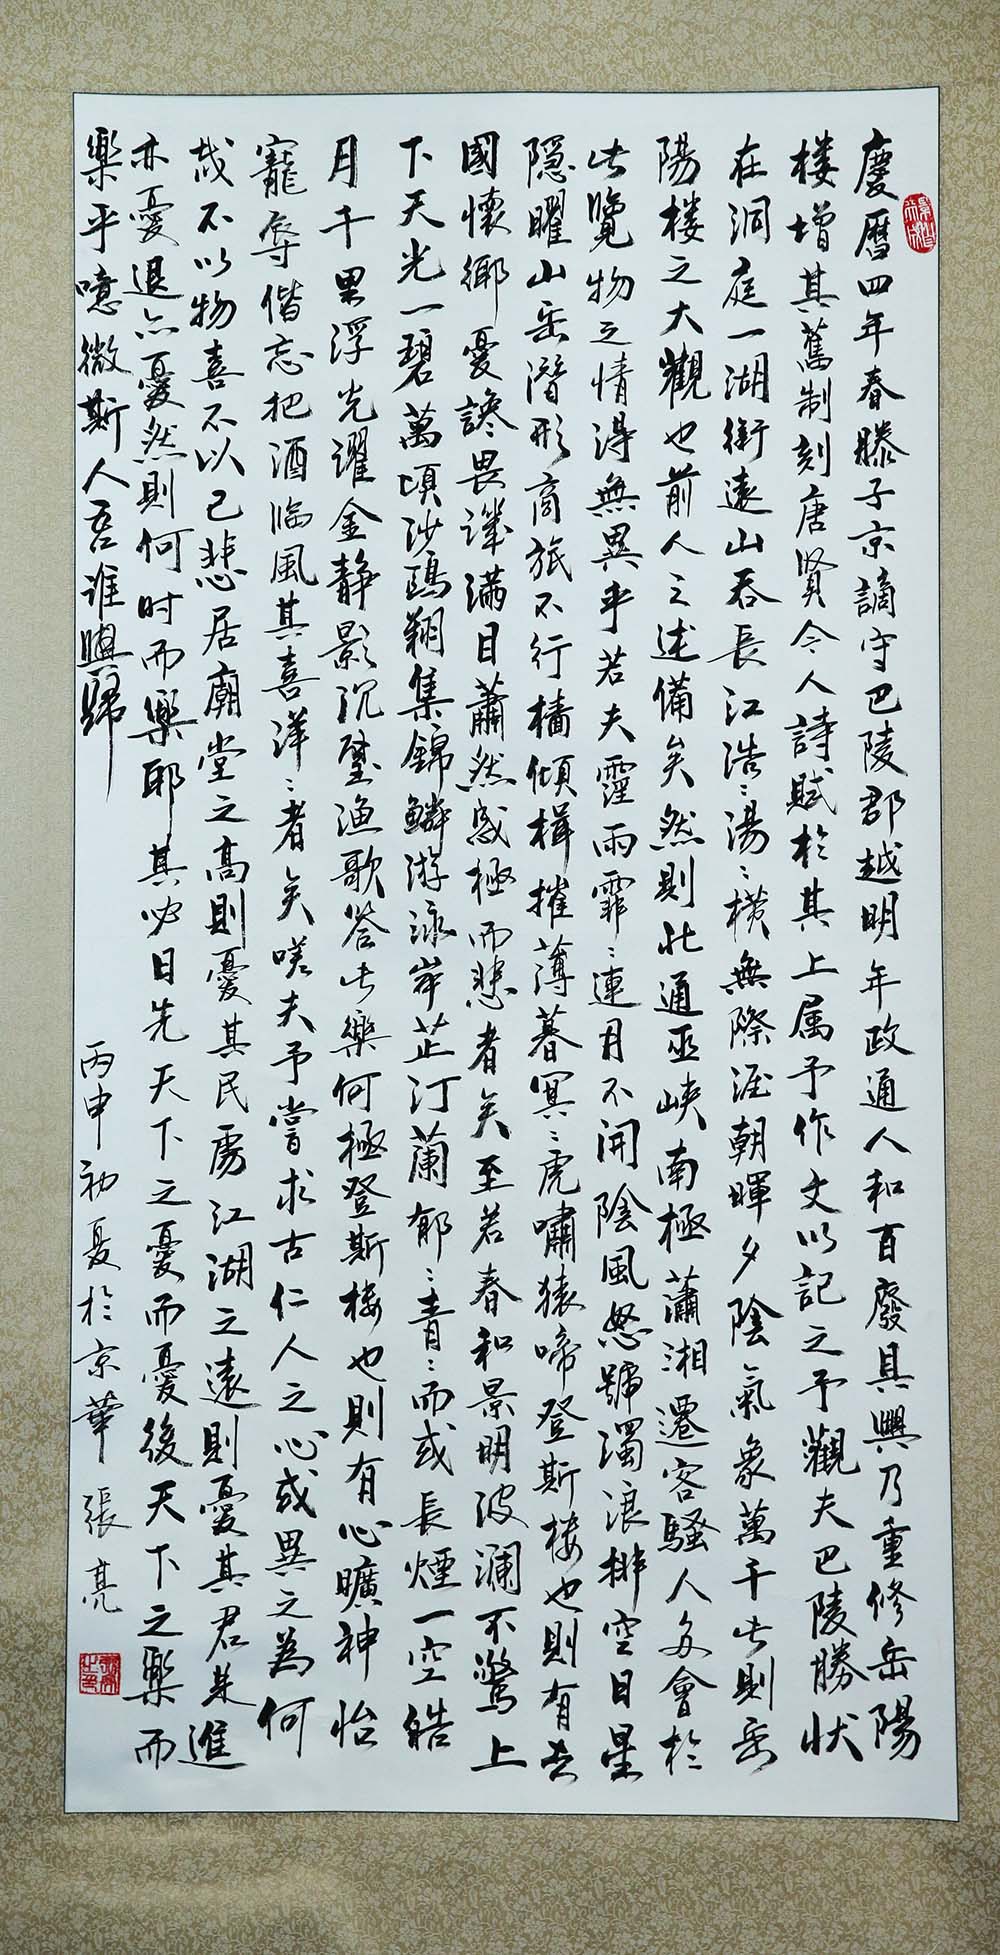 慶曆四年春滕子京謫守巴陵郡越明年政通人和百廢具興乃重修岳陽
楼增其舊制刻唐賢今人詩賦於其上属予作文以記之予觀夫巴陵勝狀
在洞庭一湖銜遠山吞長江浩〻湯〻横無際涯朝暉夕陰氣象萬千此則岳
陽楼之大觀也前人之述備矣然則北通巫峽南極瀟湘遷客騷人多會於
此覽物之情得無異乎若夫霪雨霏〻連月不開陰風怒號濁浪排空日星
隐曜山岳潛形商旅不行檣傾楫摧薄暮冥〻虎嘯猿啼登斯楼也則有去
國懷鄉憂讒畏譏滿目蕭然感極而悲者矣至若春和景明波瀾不驚上
下天光一碧萬頃沙鷗翔集錦鱗游泳岸芷汀蘭郁〻青〻而或長煙一空皓
月千里浮光躍金静影沉璧渔歌答此樂何極登斯楼也則有心曠神怡
寵辱偕忘把酒临風其喜洋〻者矣嗟夫予嘗求古仁人之心或異之為何
哉不以物喜不以己悲居廟堂之高則憂其民處江湖之遠則憂其君是進
亦憂退亦憂然則何时而樂耶其必曰先天下之憂而憂後天下之樂而
樂乎噫微斯人吾谁與歸
丙申初夏於京華 張亮